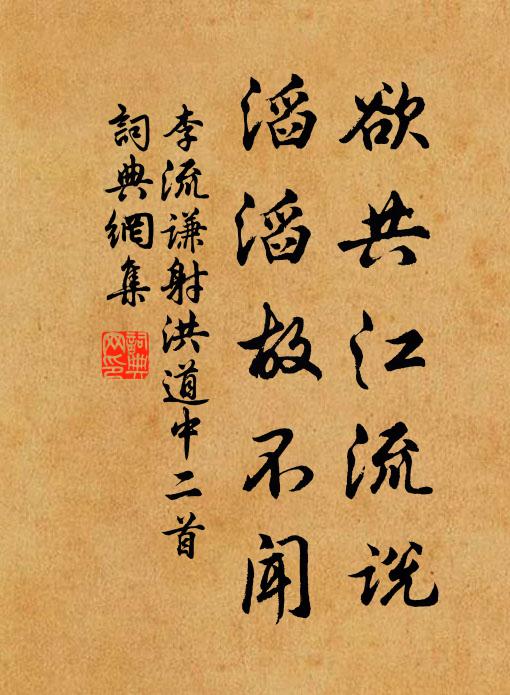 欲共江流说
滔滔故不闻
李流谦射洪道中二首
詞典網集
詞典网印